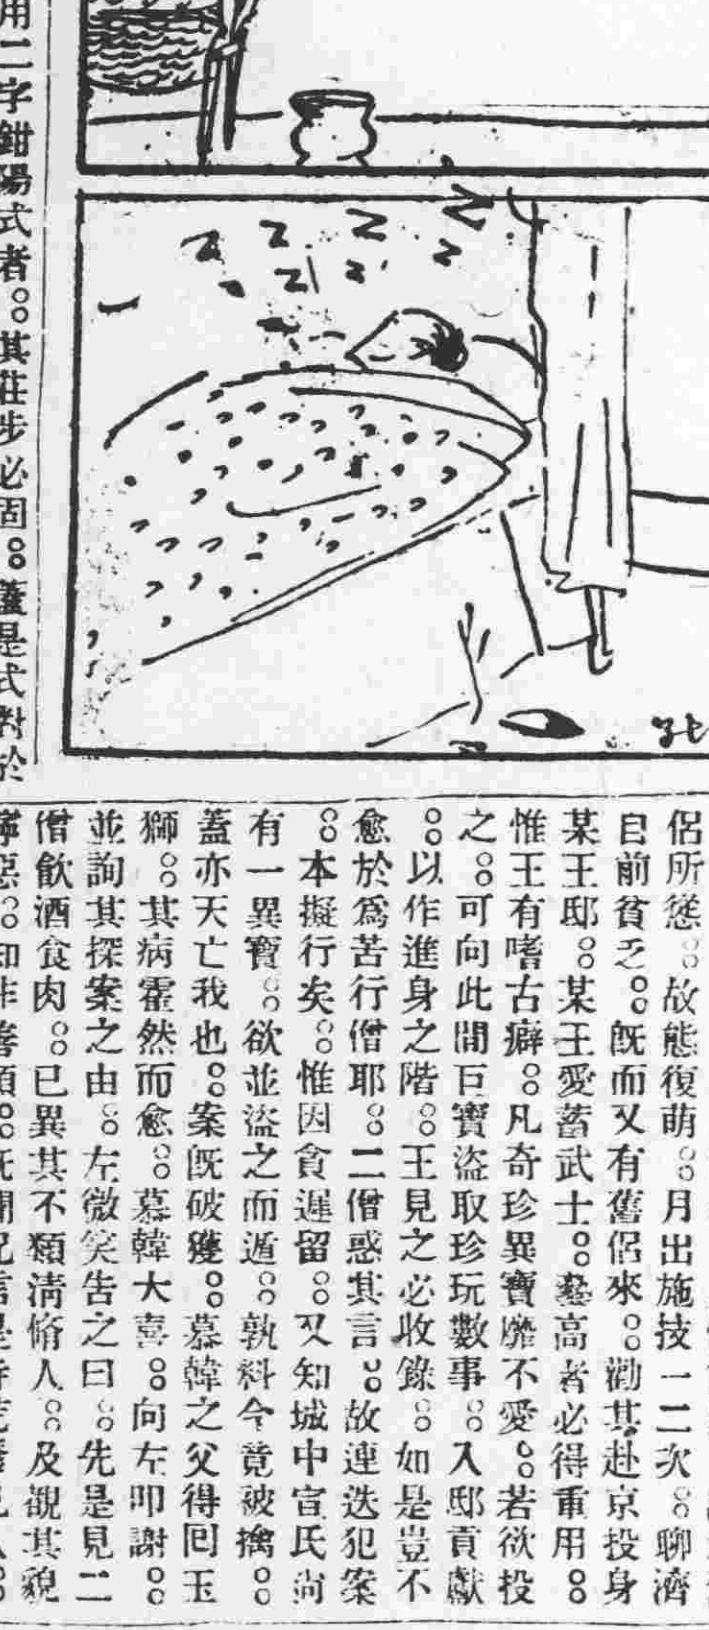 侶所慫。故態復萌。月出施技一二次。聊濟
目前貧乏。既而又有舊侶來。勸其赴京投身
某王邸。某王愛蓄武士。藝高者必得重用。
惟王有嗜古癖。凡奇珍異寶靡不愛。若欲投
之。可向此間巨寶盜取珍玩數事。入邸貢獻
。以作進身之階。王見之必收錄。如是豈不
愈於爲苦行僧耶。二僧惑其言。故連迭犯案
。本擬行矣。惟因貪遲留。又知城中宦氏尚
有一異寶。欲並盜之而遁。孰料今竟被擒。
蓋亦天亡我也。案既破獲。慕韓之父得回玉
獅。其病霍然而愈。慕韓大喜。向左叩謝。
並詢其探案之由。左微笑告之曰。先是見二
僧飲酒食肉。已異其不類清脩人。及觀其貌
用二字鉗陽式者。其莊步必固。蓋是式對於